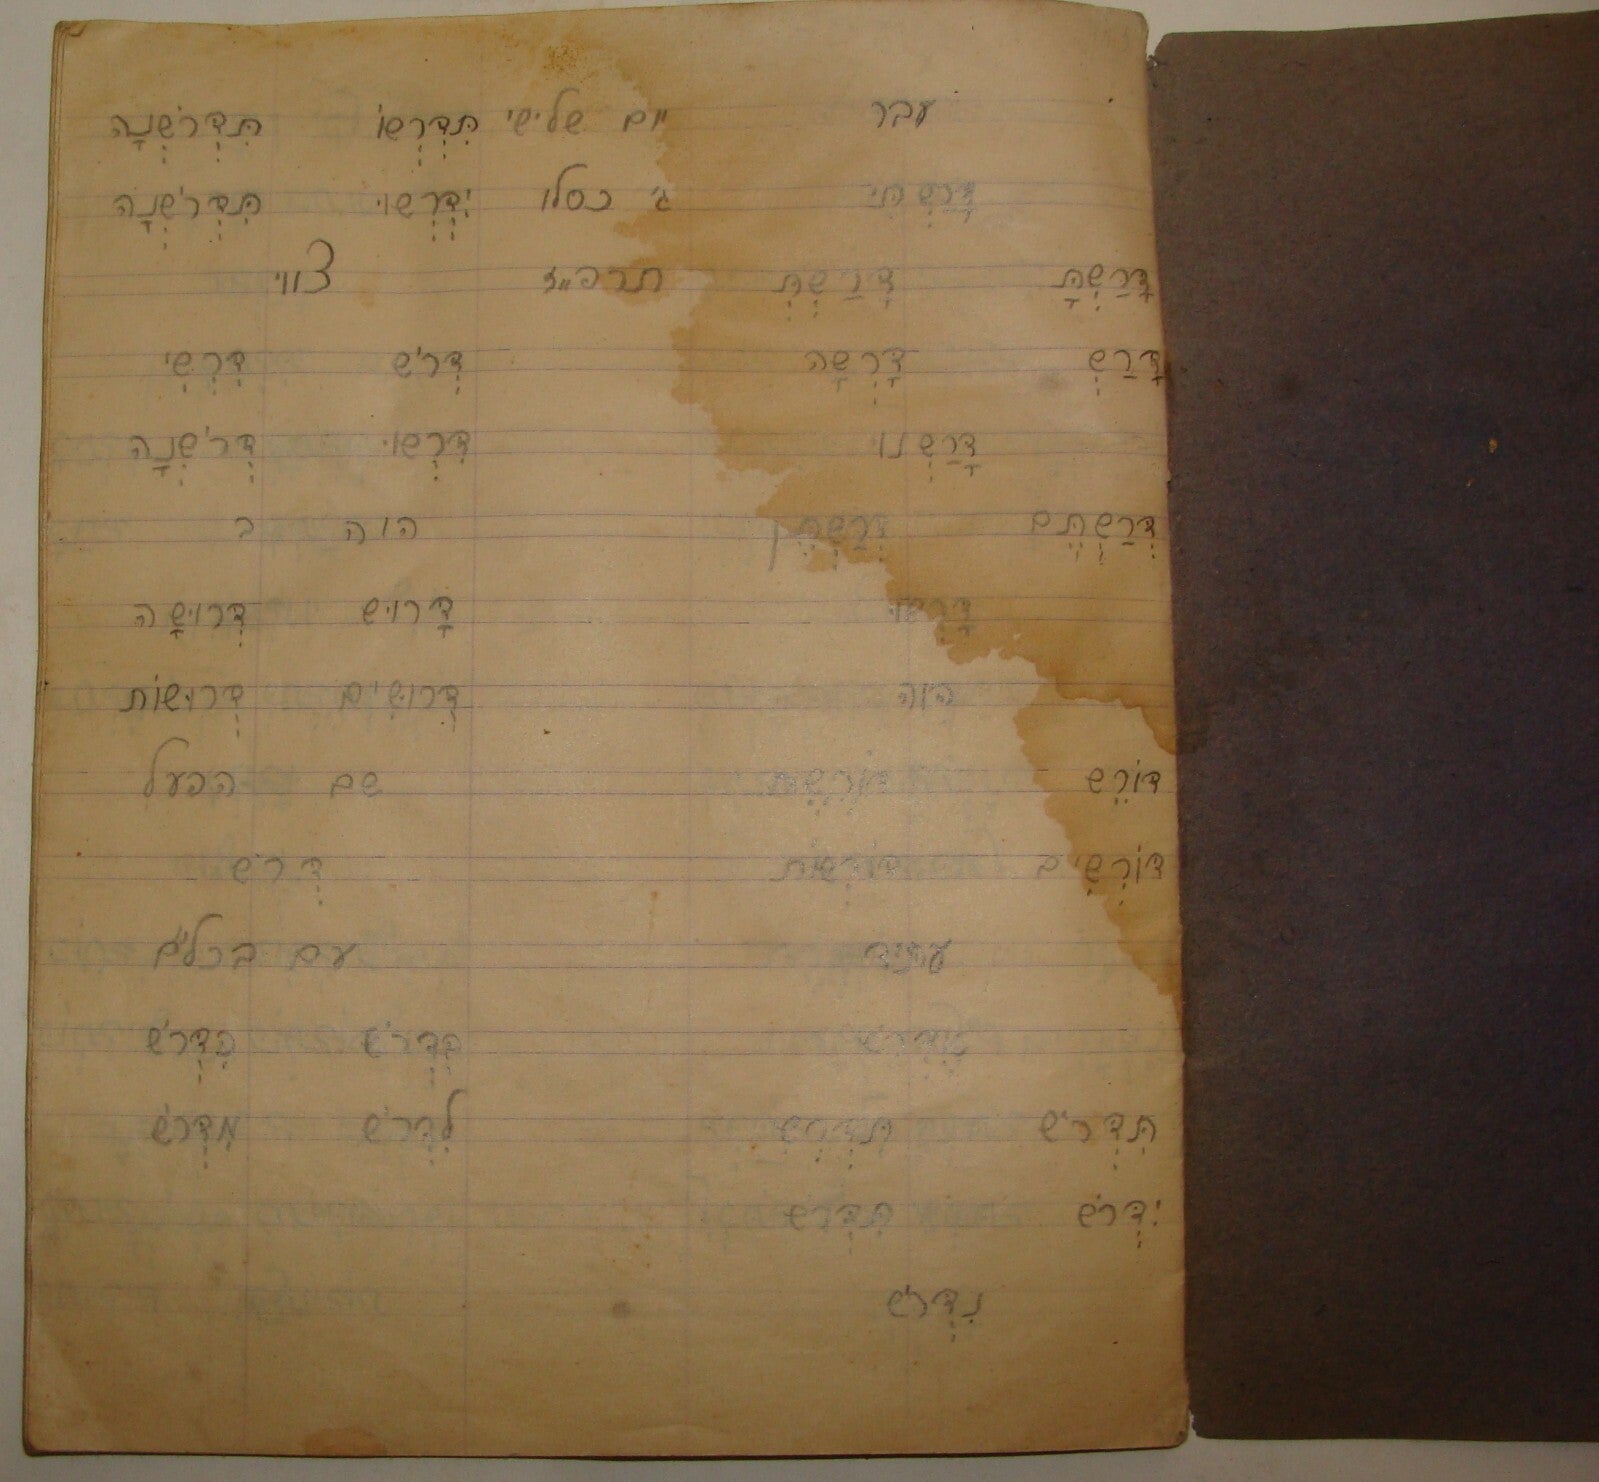 עבר
דָּרַשְׁתִּי
דָּרַשְׁתָּ דָּרַשְׁתְּ
דָּרַשְׁ דָּרְשָׁה
דָּרַשְׁנוּ
דְּרַשְׁתֶּם דְּרַשְׁתֶּן
דָּרְשׁוּ
הוה
דּוֹרֵשׁ
דּוֹרְשִׁים דּוֹרְשׁוֹת
עתיד
תִּדְרֹשׁ תִּדְרְשִׁי
יִדְרֹשׁ תִּדְרֹשׁ
נִדְרֹשׁ
יום שלישי
ג׳ כסלו
תרפ״ז
תִּדְרְשׁוּ תִּדְרֹשְׁנָה
יִדְרְשׁוּ תִּדְרֹשְׁנָה
צווי
דְּרֹשׁ דִּרְשִׁי
דִּרְשׁוּ דְּרֹשְׁנָה
הוה ב
דָּרוּשׁ דְּרוּשָׁה
דְּרוּשִׁים דְּרוּשׁוֹת
שם הפעל
דְּרֹשׁ
עם בכל״ם
בִּדְרֹשׁ כִּדְרֹשׁ
לִדְרֹשׁ מִדְּרֹשׁ